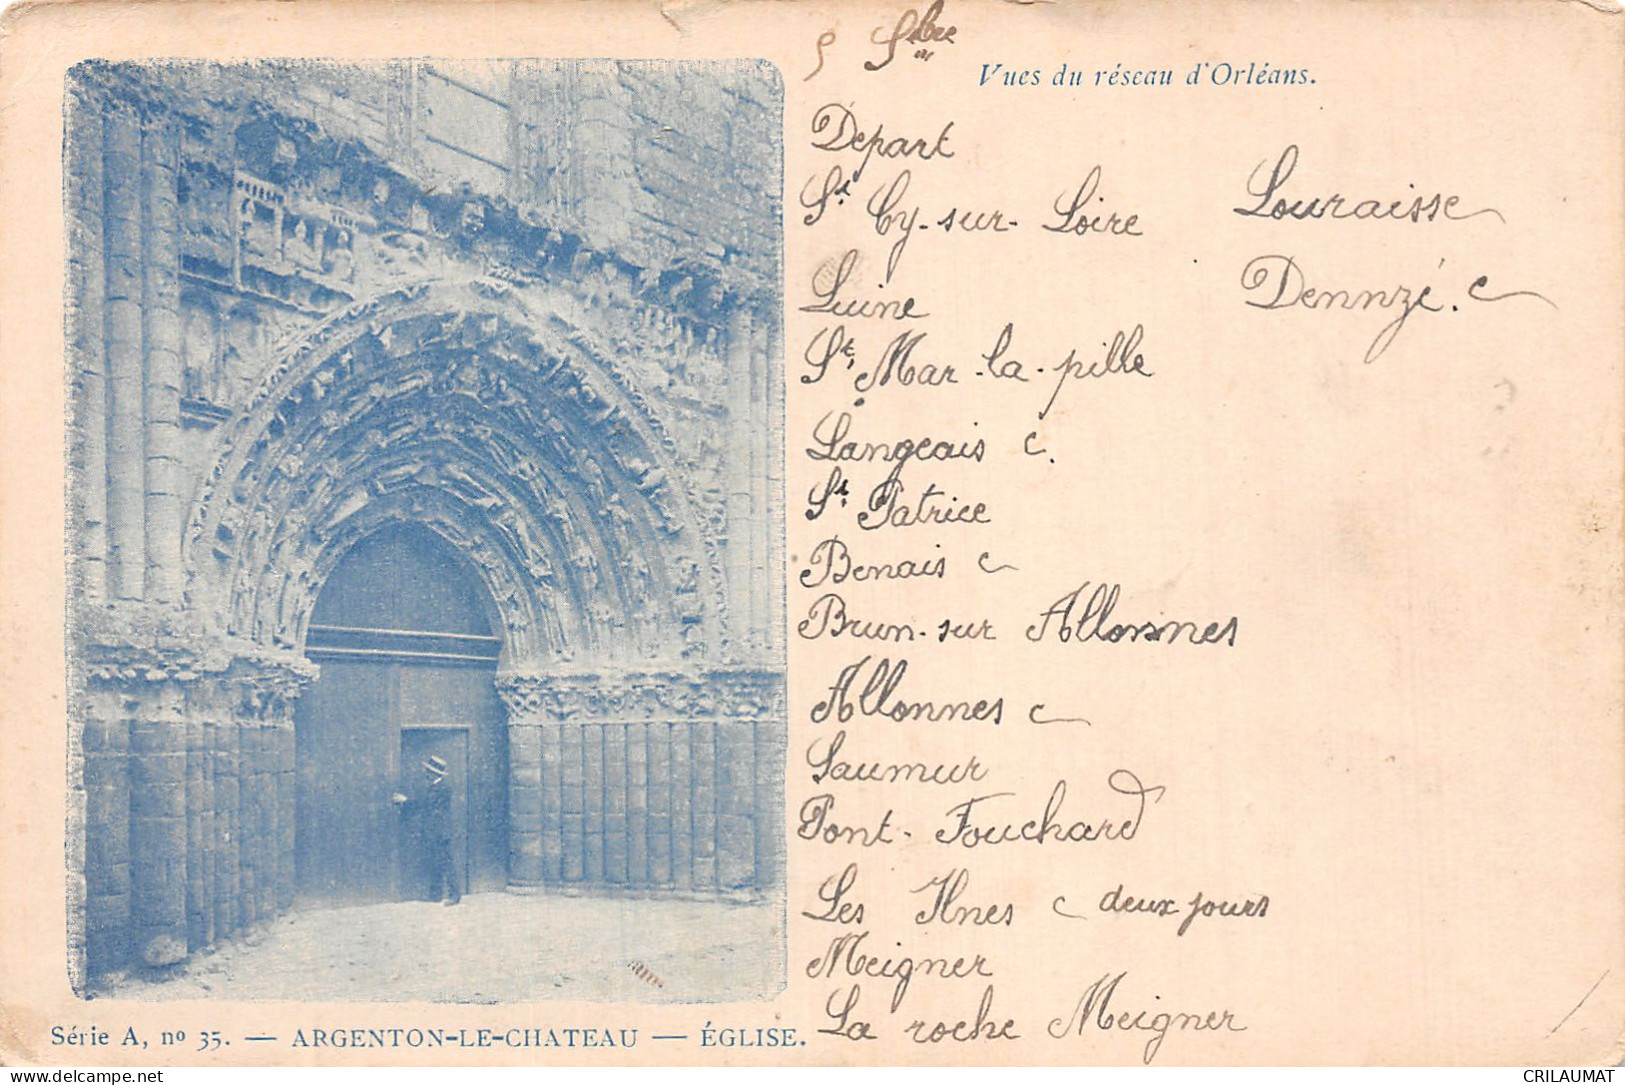 5 Sbre
Vues du réseau d'Orléans.
Départ
St Cy-sur-Loire
Luine
St Mar-la-pille
Langeais c.
St Patrice
Benais c
Brun-sur Allonnes
Allonnes c
Saumur
Pont-Fouchard
Les Ilnes c deux jours
Meigner
La roche Meigner
Louraisse
Dennzé. c
Série A, no 35. — ARGENTON-LE-CHATEAU — ÉGLISE.
delcampe.net
CRILAUMAT